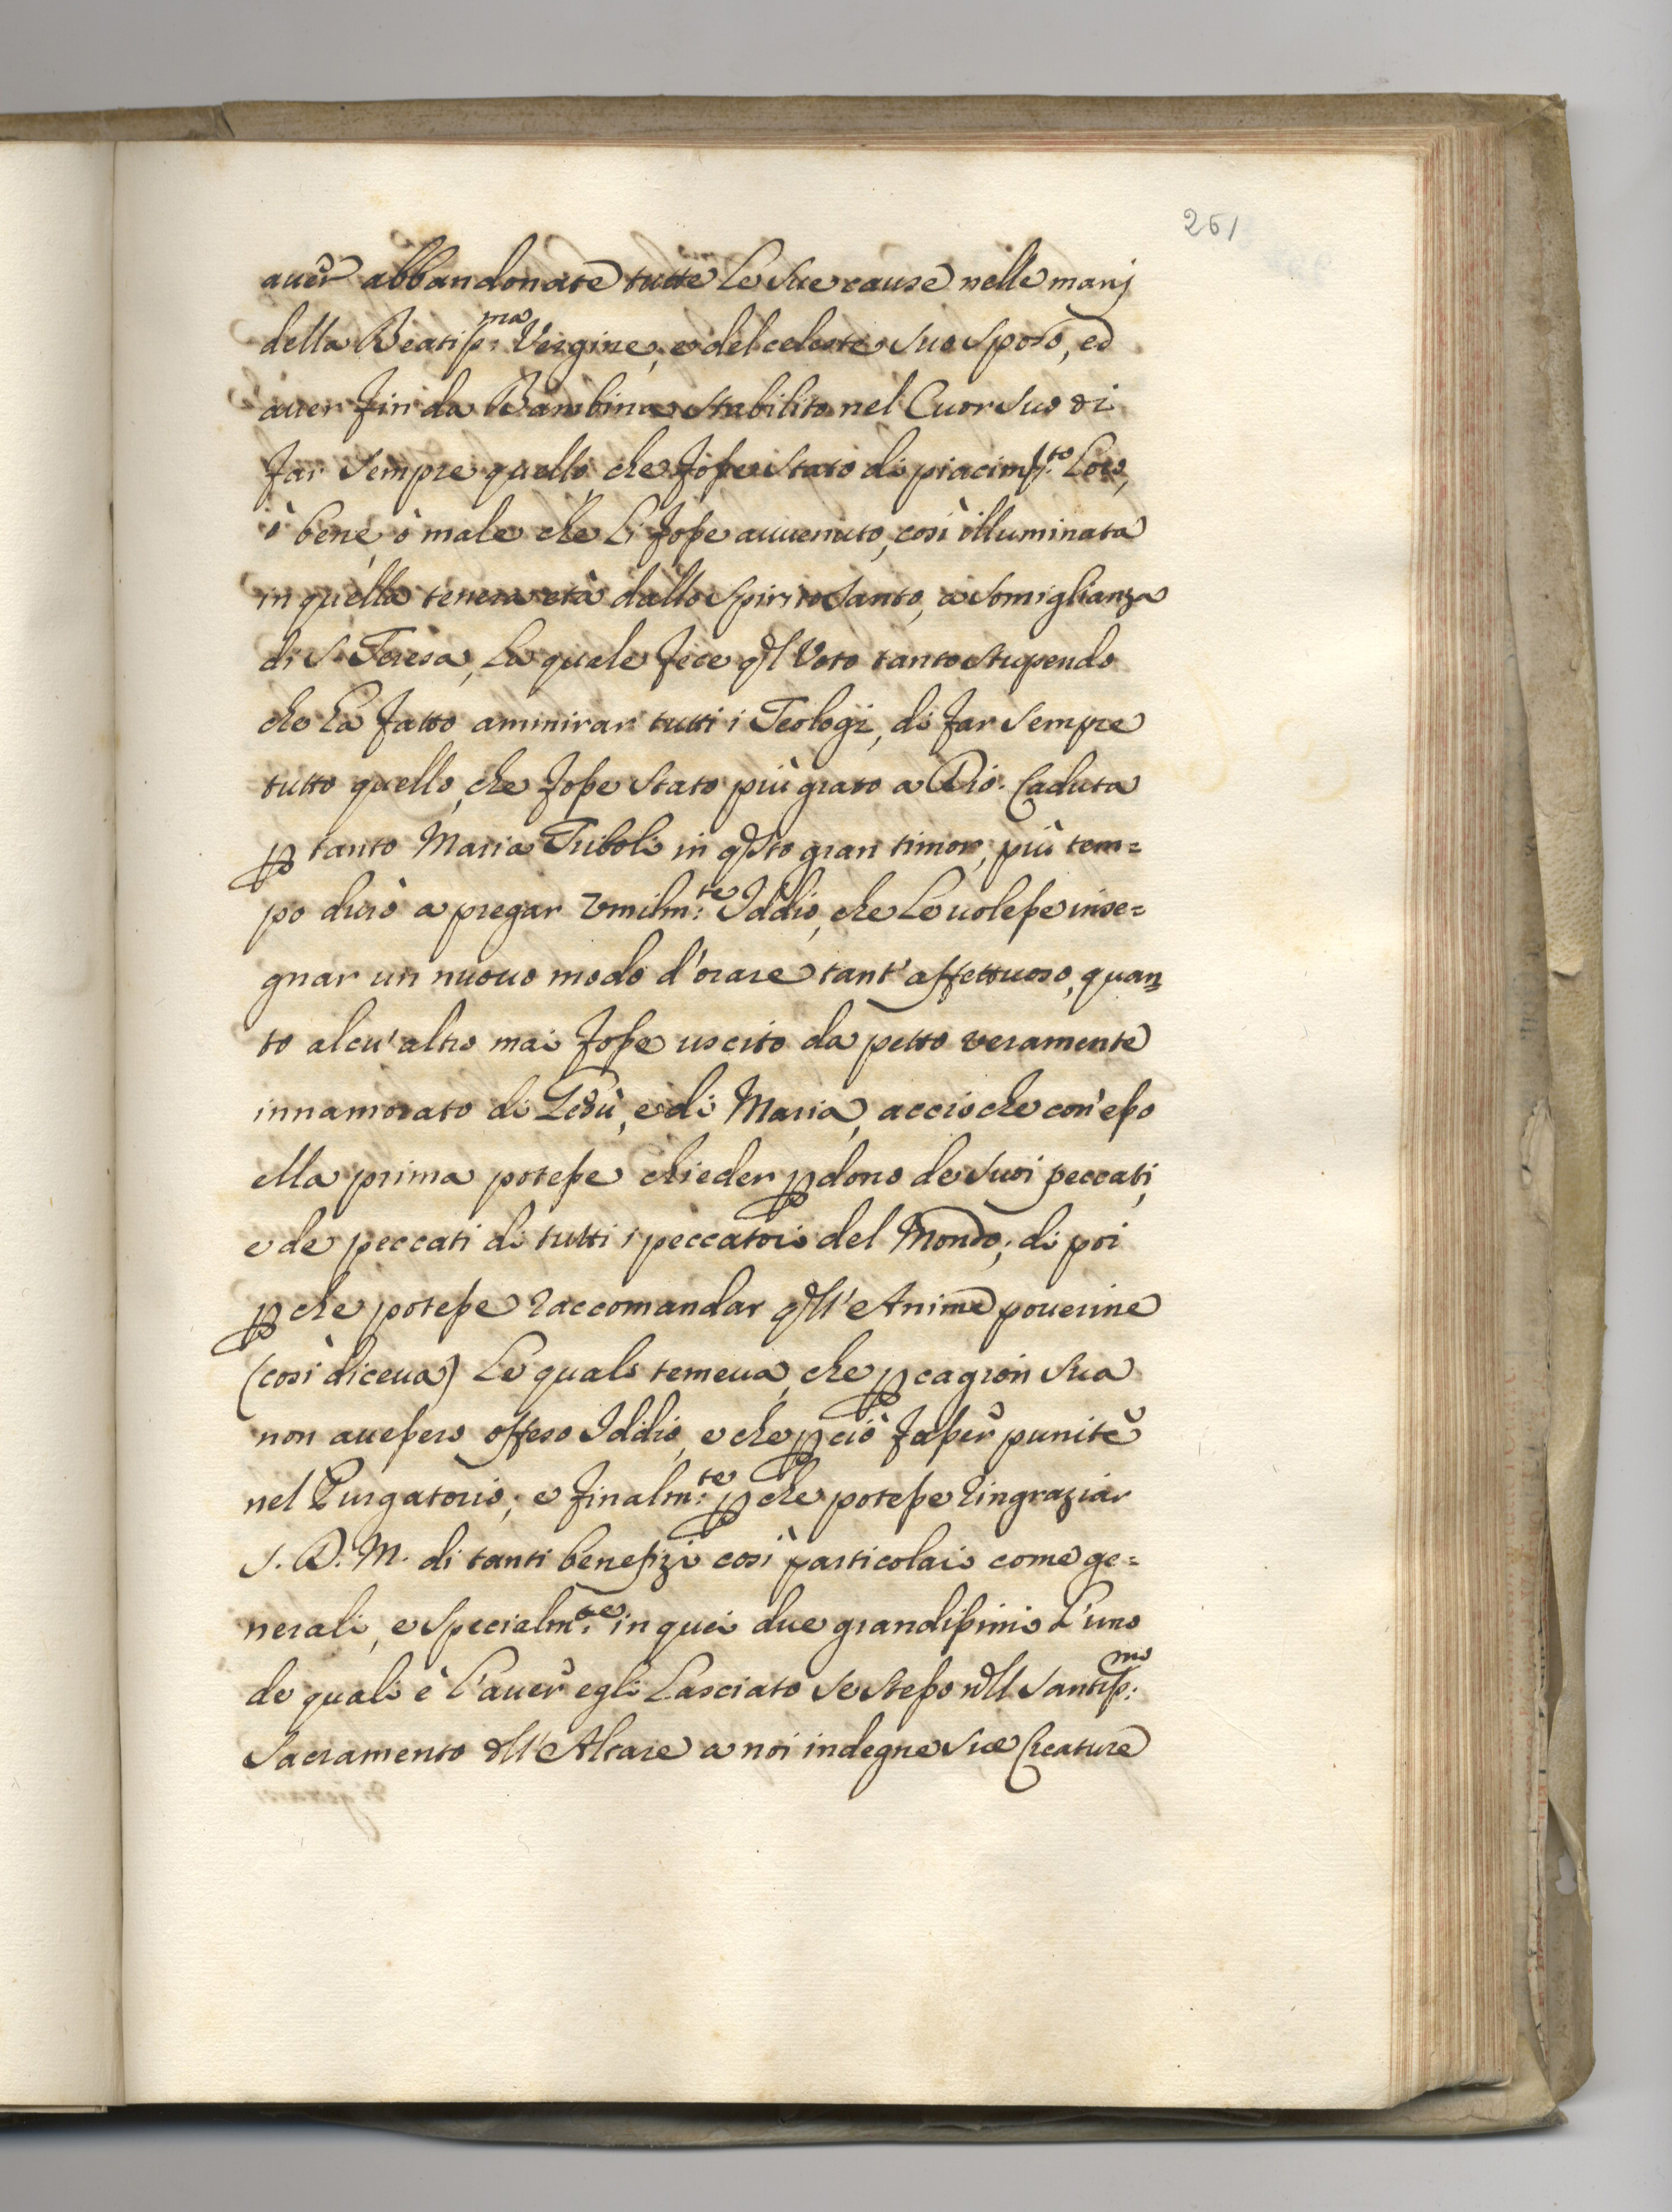 261
auer abbandonate tutte le sue cause nelle manj
della Beatiss:ma Vergine, e del celeste suo sposo, ed
auer fin da Bambina stabilito nel Cuor suo di
far sempre quello, che fosse stato di piacim:to Loro,
ò bene, ò male che li fosse auuenuto, così illuminata
in quella tenera età dallo Spirito Santo, a somiglianza
di S. Teresa, la quale fece ql Voto tanto stupendo
che ha fatto ammirar tutti i Teologi, di far sempre
tutto quello, che fosse stato più grato a Dio. Caduta
p tanto Maria Triboli in qsto gran timor, più tem=
po durò a pregar Vmilm:te Iddio, che le uolesse inse=
gnar un nuouo modo d'orare tant' affettuoso, quan=
to alcu' altro mai fosse uscito da petto veramente
innamorato di Gesù, e di Maria, acciò che con' esso
ella prima potesse chieder pdono de suoi peccati,
e de peccati di tutti i peccatori del Mondo; di poi
p che potesse raccomandar qll' Anime pouerine
(così diceua) le quali temeua, che p cagion sua
non auessero offeso Iddio, e che p ciò fasser punite
nel Purgatorio; e finalm:te p che potesse ringraziar
S. D. M. di tanti benefizi così particolari come ge=
nerali, e specialm:te in quei due grandissimi l'uno
de quali è l'auer egli lasciato se stesso nll Santiss:mo
Sacramento dll' Altare a noi indegne sue Creature